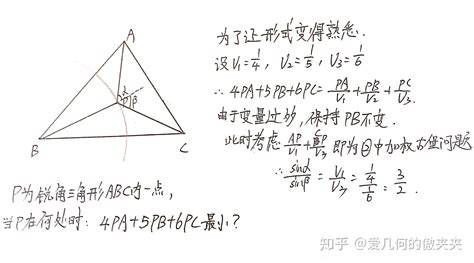 A
α
β
B
C
P为锐角三角形ABC内一点,
当P在何处时: 4PA+5PB+6PC最小?
为了让形式变得熟悉.
设V₁=1/4, V₂=1/5, V₃=1/6
∴ 4PA+5PB+6PC=PA/V₁+PB/V₂+PC/V₃.
由于变量过多, 保持PB不变.
此时考虑 AP/V₁+CP/V₃ 即为②中加权古堡问题
∴ sinα/sinβ=V₁/V₃=(1/4)/(1/6)=3/2.
知乎 @爱几何的傲夹夹